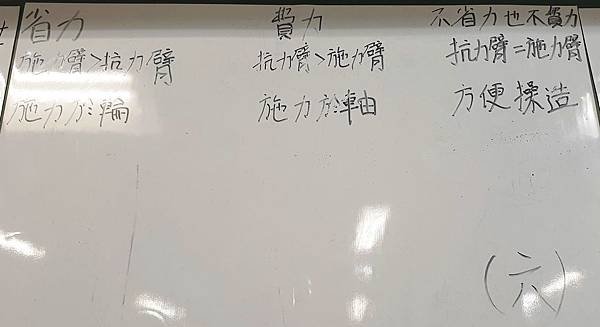 省力
施力臂>抗力臂
施力於輪
費力
抗力臂>施力臂
施力於軸
不省力也不費力
抗力臂=施力臂
方便操造
(六)